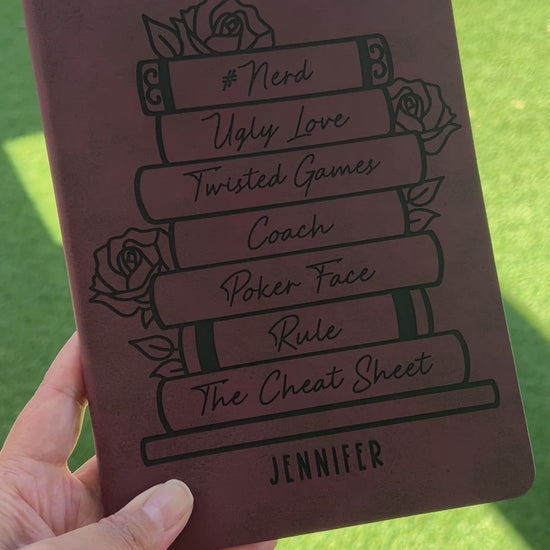 #Nerd
Ugly Love
Twisted Games
Coach
Poker Face
Rule
The Cheat Sheet
JENNIFER